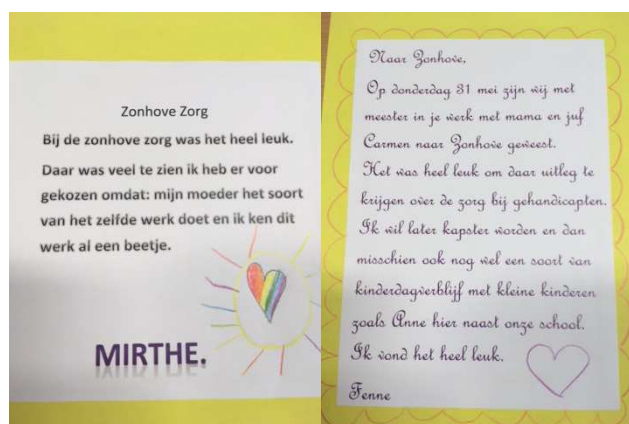 Zonhove Zorg
Bij de zonhove zorg was het heel leuk.
Daar was veel te zien ik heb er voor
gekozen omdat: mijn moeder het soort
van het zelfde werk doet en ik ken dit
werk al een beetje.
MIRTHE.
Naar Zonhove,
Op donderdag 31 mei zijn wij met
meester in je werk met mama en juf
Carmen naar Zonhove geweest.
Het was heel leuk om daar uitleg te
krijgen over de zorg bij gehandicapten.
Ik wil later kapster worden en dan
misschien ook nog wel een soort van
kinderdagverblijf met kleine kinderen
zoals Anne hier naast onze school.
Ik vond het heel leuk.
Fenne